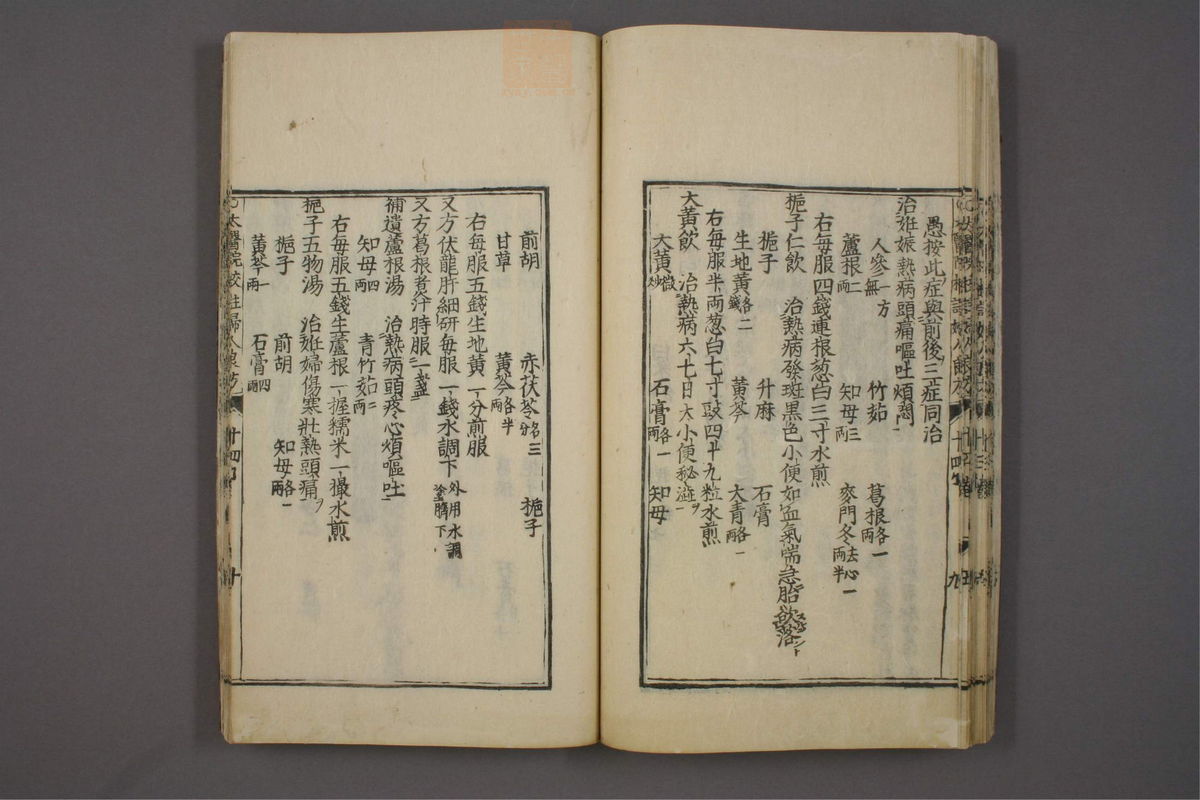 愚按此症與前後三症同治
治姙娠熱病頭痛嘔吐煩悶
人參一方無 竹茹 葛根各一兩
蘆根二兩 知母三兩 麥門冬去心一兩半
右每服四錢連根葱白三寸水煎
梔子仁飲 治熱病發斑黑色小便如血氣喘急胎欲落
梔子 升麻 石膏
生地黃各二錢 黃芩 大青各一兩
右每服半兩葱白七寸豉四十九粒水煎
大黃飲 治熱病六七日大小便秘澁
大黃微炒 石膏各一兩 知母
前胡 赤茯苓各三分 梔子
甘草 黃芩各半兩
右每服五錢生地黃一分煎服
又方伏龍肝細研每服一錢水調下外用水調塗臍下
又方葛根煮汁時服一盞
補遺蘆根湯 治熱病頭疼心煩嘔吐
知母四兩 青竹茹三兩
右每服五錢生蘆根一握糯米一撮水煎
梔子五物湯 治姙婦傷寒壯熱頭痛
梔子 前胡 知母各一兩
黃芩一兩 石膏四兩
太醫院校註婦人良方 十四 十